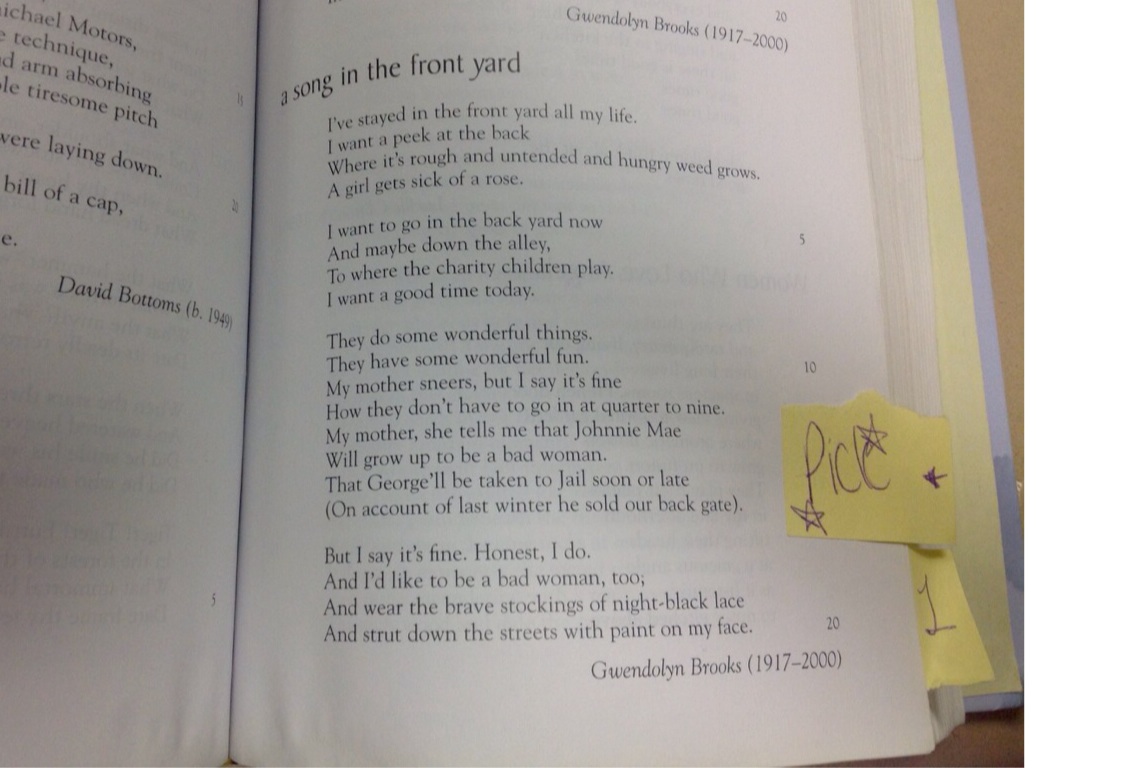 ichael Motors,
technique,
d arm absorbing
le tiresome pitch
were laying down.
bill of a cap,
e.
David Bottoms (b. 1949)
20
Gwendolyn Brooks (1917–2000)
a song in the front yard
I've stayed in the front yard all my life.
I want a peek at the back
Where it's rough and untended and hungry weed grows.
A girl gets sick of a rose.
I want to go in the back yard now
5
And maybe down the alley,
To where the charity children play.
I want a good time today.
They do some wonderful things.
They have some wonderful fun.
10
My mother sneers, but I say it's fine
How they don't have to go in at quarter to nine.
My mother, she tells me that Johnnie Mae
Will grow up to be a bad woman.
That George'll be taken to Jail soon or late
(On account of last winter he sold our back gate).
But I say it's fine. Honest, I do.
And I'd like to be a bad woman, too;
And wear the brave stockings of night-black lace
5
And strut down the streets with paint on my face.
20
Gwendolyn Brooks (1917–2000)
1